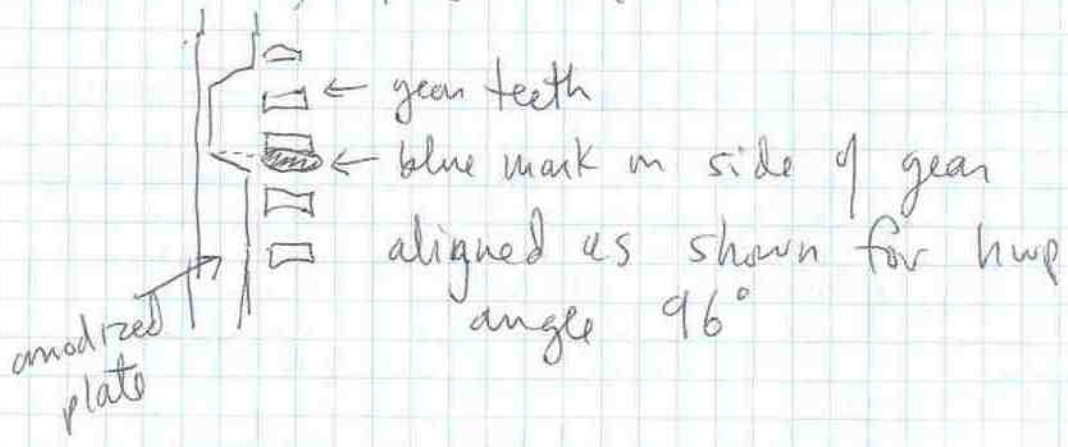 ← gear teeth
← blue mark on side of gear
aligned as shown for hwp
angle 96°
anodized
plate